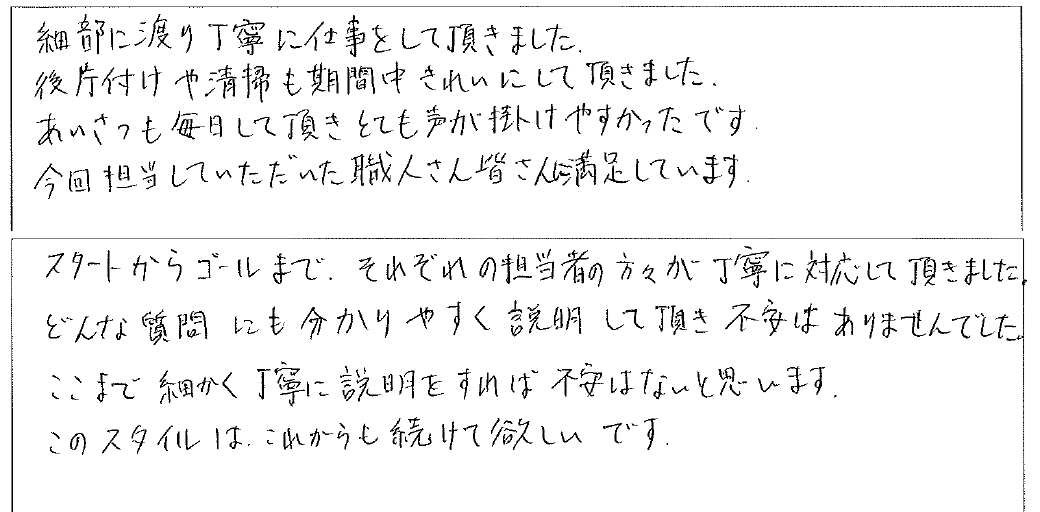 細部に渡り丁寧に仕事をして頂きました.
後片付けや清掃も期間中きれいにして頂きました.
あいさつも毎日して頂きとても声が掛けやすかったです.
今回担当していただいた職人さん皆さんに満足しています.
スタートからゴールまで、それぞれの担当者の方々が丁寧に対応して頂きました.
どんな質問にも分かりやすく説明して頂き不安はありませんでした.
ここまで細かく丁寧に説明をすれば不安はないと思います.
このスタイルは、これからも続けて欲しいです.